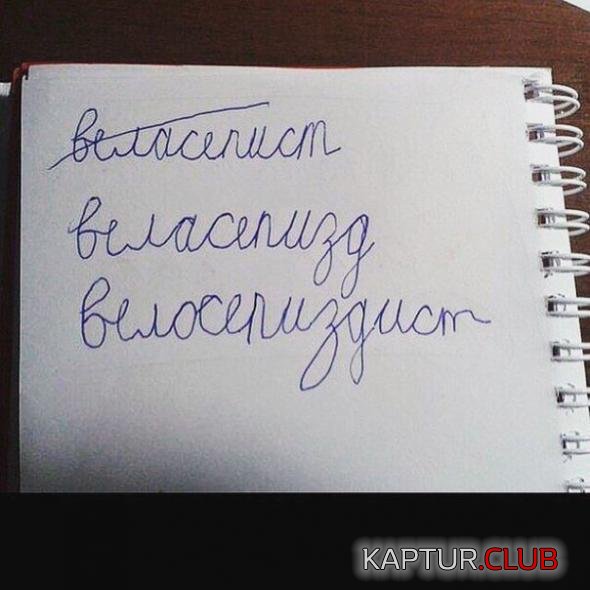 веласепист
веласепизд
велосепиздист
KAPTUR.CLUB